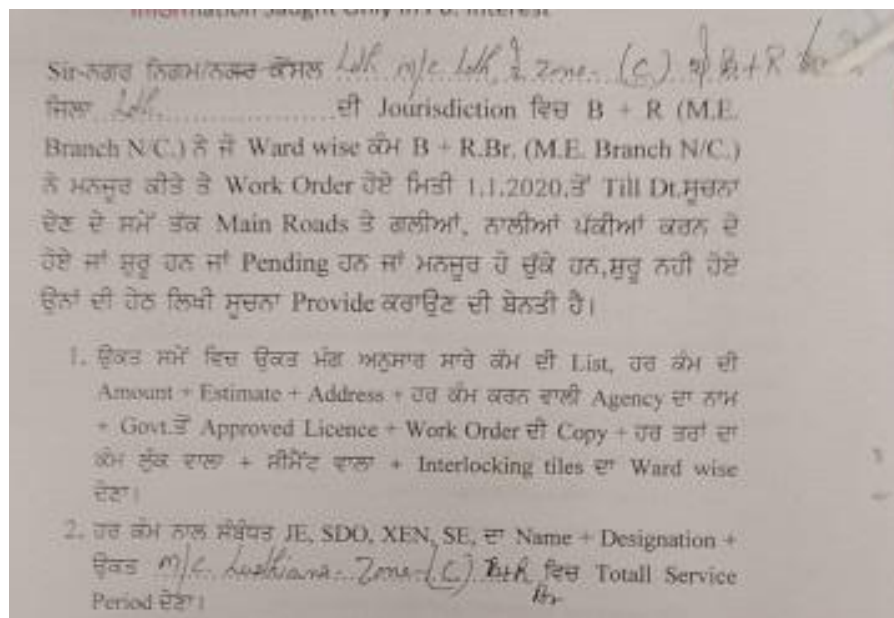 Information Saught Only in P
Interest
Sir-ਨਗਰ ਨਿਗਮ/ਨਗਰ ਕੌਂਸਲ Ldh m/c Ldh, Zone- (C) B+R
ਜਿਲਾ Ldh ਦੀ Jourisdiction ਵਿਚ B + R (M.E.
Branch N/C.) ਨੇ ਜੋ Ward wise ਕੰਮ B + R.Br. (M.E. Branch N/C.)
ਨੇ ਮਨਜੂਰ ਕੀਤੇ ਤੇ Work Order ਹੋਏ ਮਿਤੀ 1.1.2020.ਤੋਂ Till Dt.ਸੂਚਨਾ
ਦੇਣ ਦੇ ਸਮੇਂ ਤੱਕ Main Roads ਤੇ ਗਲੀਆਂ, ਨਾਲੀਆਂ ਪੱਕੀਆਂ ਕਰਨ ਦੇ
ਹੋਏ ਜਾਂ ਸ਼ੁਰੂ ਹਨ ਜਾਂ Pending ਹਨ ਜਾਂ ਮਨਜੂਰ ਹੋ ਚੁੱਕੇ ਹਨ,ਸ਼ੁਰੂ ਨਹੀ ਹੋਏ
ਉਨਾਂ ਦੀ ਹੇਠ ਲਿਖੀ ਸੂਚਨਾ Provide ਕਰਾਉਣ ਦੀ ਬੇਨਤੀ ਹੈ।
1. ਉਕਤ ਸਮੇਂ ਵਿਚ ਉਕਤ ਮੰਗ ਅਨੁਸਾਰ ਸਾਰੇ ਕੰਮ ਦੀ List, ਹਰ ਕੰਮ ਦੀ
Amount + Estimate + Address + ਹਰ ਕੰਮ ਕਰਨ ਵਾਲੀ Agency ਦਾ ਨਾਮ
+ Govt.ਤੋਂ Approved Licence + Work Order ਦੀ Copy + ਹਰ ਤਰਾਂ ਦਾ
ਕੰਮ ਲੁੱਕ ਵਾਲਾ + ਸੀਮੇਂਟ ਵਾਲਾ + Interlocking tiles ਦਾ Ward wise
ਦੇਣਾ।
2. ਹਰ ਕੰਮ ਨਾਲ ਸੰਬੰਧਤ JE, SDO, XEN, SE, ਦਾ Name + Designation +
ਉਕਤ m/c Ludhiana- Zone-(C) B+R Br ਵਿਚ Totall Service
Period ਦੇਣਾ।